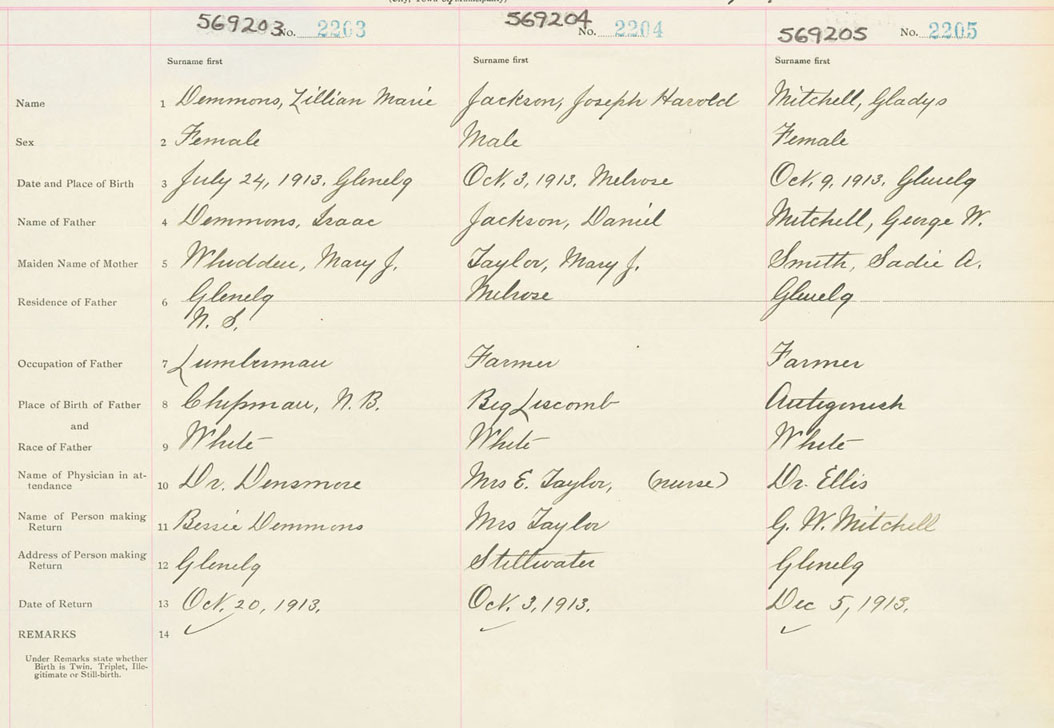 (City, Town or Municipality)
569203 No. 2203 569204 No. 2204 569205 No. 2205
Surname first Surname first Surname first
Name 1 Demmons, Lillian Marie Jackson, Joseph Harold Mitchell, Gladys
Sex 2 Female Male Female
Date and Place of Birth 3 July 24, 1913. Glenelg Oct. 3, 1913, Melrose Oct. 9, 1913. Glenelg
Name of Father 4 Demmons, Isaac Jackson, Daniel Mitchell, George W.
Maiden Name of Mother 5 Whidden, Mary J. Taylor, Mary J. Smith, Sadie A.
Residence of Father 6 Glenelg Melrose Glenelg
N. S.
Occupation of Father 7 Lumberman Farmer Farmer
Place of Birth of Father 8 Chipman, N.B. Big Liscomb Antigonish
and
Race of Father 9 White White White
Name of Physician in at-
tendance 10 Dr. Densmore Mrs E. Taylor, (nurse) Dr. Ellis
Name of Person making
Return 11 Bessie Demmons Mrs Taylor G. W. Mitchell
Address of Person making
Return 12 Glenelg Stillwater Glenelg
Date of Return 13 Oct. 20, 1913. Oct. 3, 1913. Dec 5, 1913.
REMARKS 14
Under Remarks state whether
Birth is Twin, Triplet, Ille-
gitimate or Still-birth.